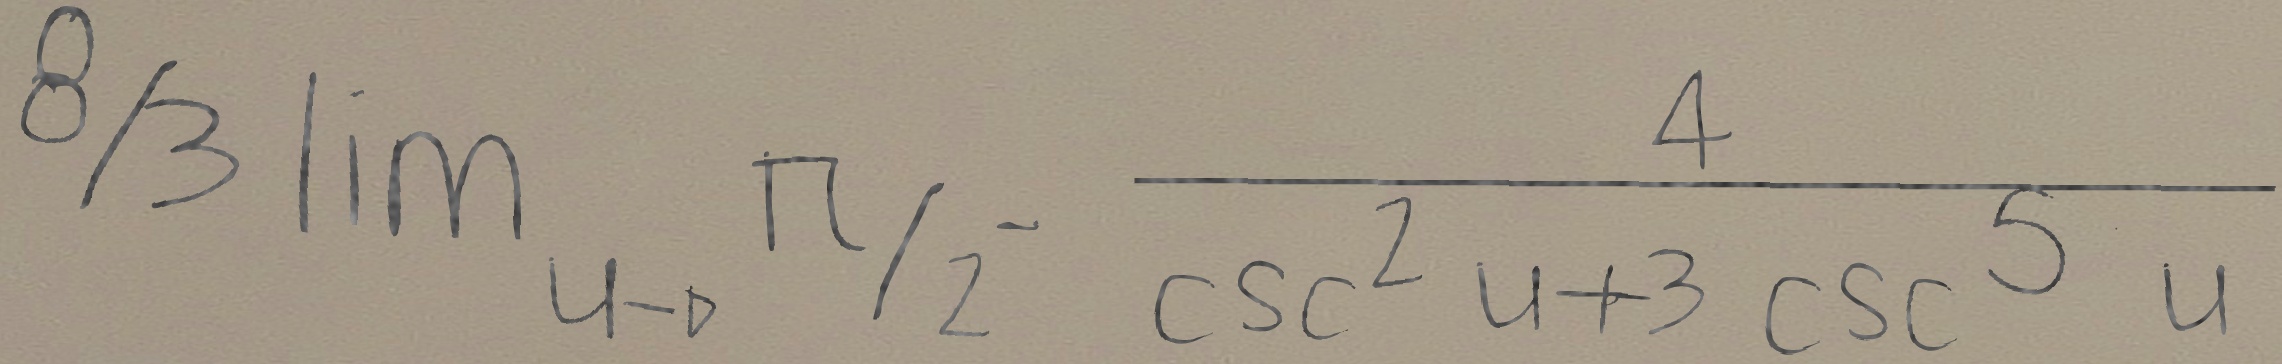 8/3 lim_{u→π/2^-} \frac{4}{csc^2 u+3 csc^5 u}